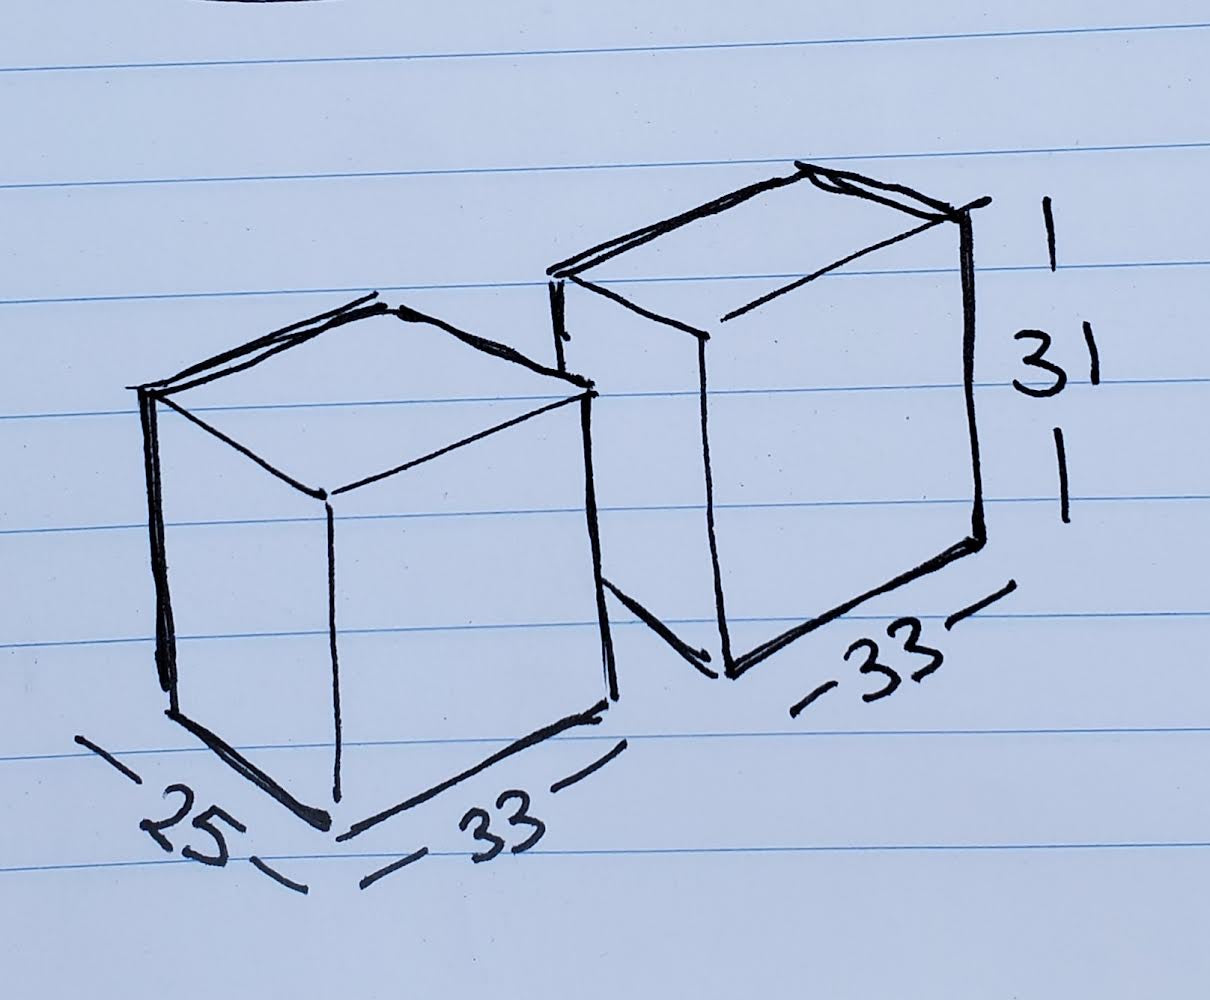 31
33
25
33